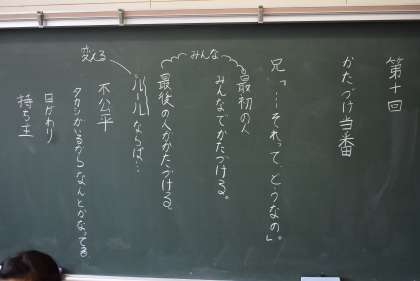 第十回
かたづけ当番
兄「…それって、どうなの」。
最初の人
みんなでかたづける。
みんな
最後の人がかたづける。
変える
ルールならば…
不公平
タカシがいるからなんとかなってる
日がわり
持ち主